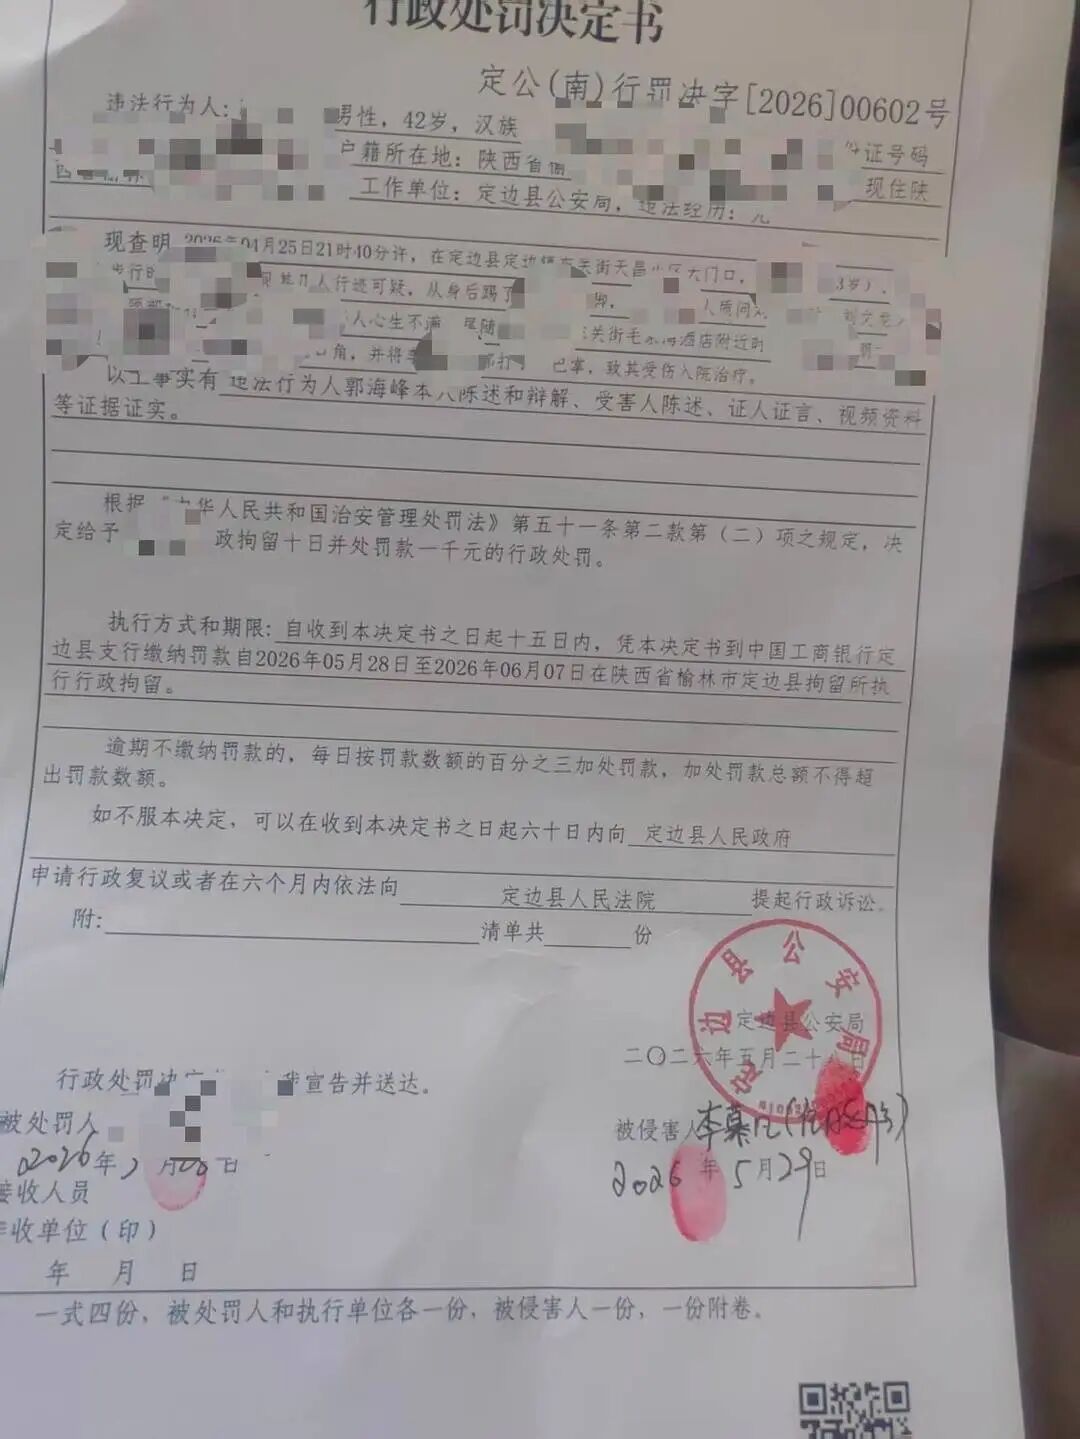 行政处罚决定书
定公(南)行罚决字[2026]00602号
违法行为人: 男性，42岁，汉族 证号码
户籍所在地：陕西省 现住陕
工作单位：定边县公安局，违法经历：无
现查明 2026年04月25日21时40分许，在定边县定边镇东关街天昌小区大门口， 3岁），
步行时 人行迹可疑，从身后踢了 脚， 人质问
人心生不满 尾随 关街毛 酒店附近时
角，并将 部打 巴掌，致其受伤入院治疗。
以上事实有 违法行为人郭海峰本人陈述和辩解、受害人陈述、证人证言、视频资料
等证据证实。
根据《中华人民共和国治安管理处罚法》第五十一条第二款第（二）项之规定，决
定给予 政拘留十日并处罚款一千元的行政处罚。
执行方式和期限：自收到本决定书之日起十五日内，凭本决定书到中国工商银行定
边县支行缴纳罚款自2026年05月28日至2026年06月07日在陕西省榆林市定边县拘留所执
行行政拘留。
逾期不缴纳罚款的，每日按罚款数额的百分之三加处罚款，加处罚款总额不得超
出罚款数额。
如不服本决定，可以在收到本决定书之日起六十日内向 定边县人民政府
申请行政复议或者在六个月内依法向 定边县人民法院 提起行政诉讼.
附: 清单共 份
定边县公安局
定边县公安局
二〇二六年五月二十 日
行政处罚决定 我宣告并送达。
被处罚人
2026年 月 日
被侵害人 李
2026年5月29日
接收人员
收单位（印）
年 月 日
一式四份，被处罚人和执行单位各一份，被侵害人一份，一份附卷。